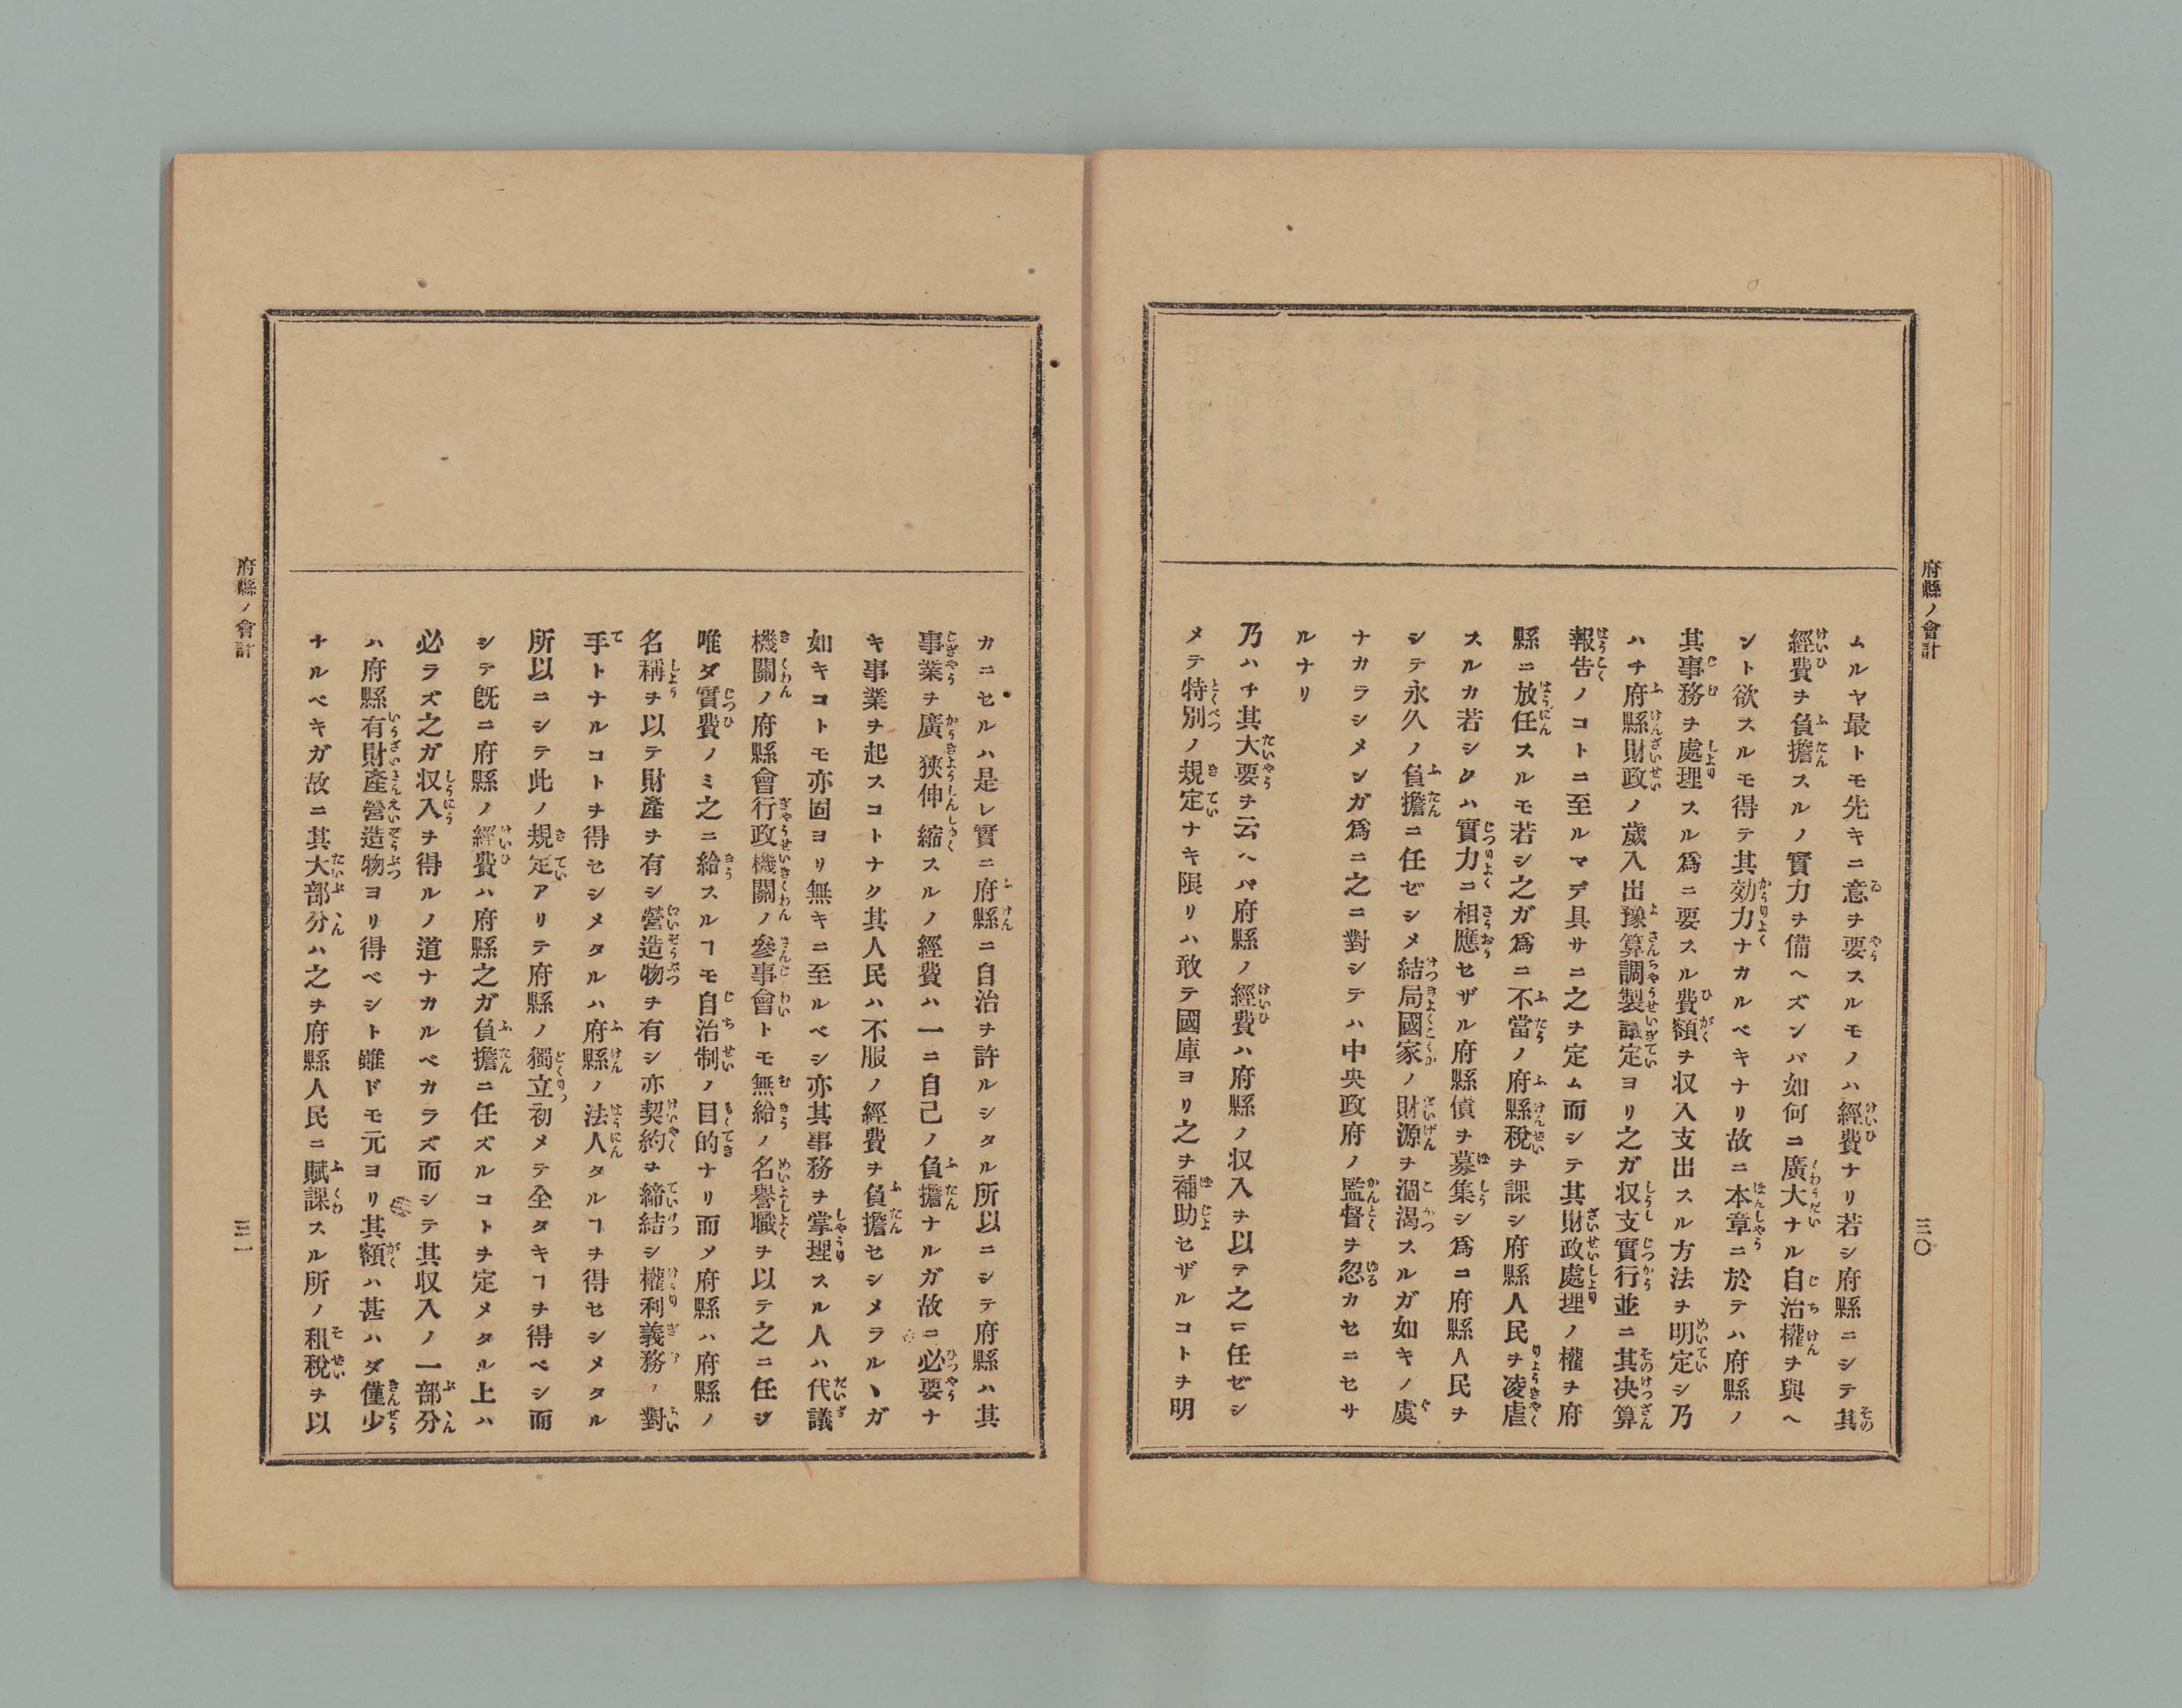 府縣ノ會計
三〇
ムルヤ最トモ先キニ意ヲ要スルモノハ經費ナリ若シ府縣ニシテ其
經費ヲ負擔スルノ實力ヲ備ヘズンバ如何ニ廣大ナル自治權ヲ與ヘ
ント欲スルモ得テ其効力ナカルベキナリ故ニ本章ニ於テハ府縣ノ
其事務ヲ處理スル爲ニ要スル費額ヲ収入支出スル方法ヲ明定シ乃
ハチ府縣財政ノ歲入出豫算調製議定ヨリ之ガ収支實行並ニ其决算
報告ノコトニ至ルマデ具サニ之ヲ定ム而シテ其財政處理ノ權ヲ府
縣ニ放任スルモ若シ之ガ爲ニ不當ノ府縣稅ヲ課シ府縣人民ヲ凌虐
スルカ若シクハ實力ニ相應セザル府縣債ヲ募集シ爲ニ府縣人民ヲ
シテ永久ノ負擔ニ任ゼシメ結局國家ノ財源ヲ涸渴スルガ如キノ虞
ナカラシメンガ爲ニ之ニ對シテハ中央政府ノ監督ヲ忽カセニセサ
ルナリ
乃ハチ其大要ヲ云ヘバ府縣ノ經費ハ府縣ノ収入ヲ以テ之ニ任ゼシ
メテ特別ノ規定ナキ限リハ敢テ國庫ヨリ之ヲ補助セザルコトヲ明
カニセルハ是レ實ニ府縣ニ自治ヲ許ルシタル所以ニシテ府縣ハ其
事業ヲ廣狹伸縮スルノ經費ハ一ニ自己ノ負擔ナルガ故ニ必要ナ
キ事業ヲ起スコトナク其人民ハ不服ノ經費ヲ負擔セシメラルヽガ
如キコトモ亦固ヨリ無キニ至ルベシ亦其事務ヲ掌理スル人ハ代議
機關ノ府縣會行政機關ノ參事會トモ無給ノ名譽職ヲ以テ之ニ任ジ
唯ダ實費ノミ之ニ給スルヿモ自治制ノ目的ナリ而メ府縣ハ府縣ノ
名稱ヲ以テ財產ヲ有シ營造物ヲ有シ亦契約ヲ締結シ權利義務ノ對
手トナルコトヲ得セシメタルハ府縣ノ法人タルヿヲ得セシメタル
所以ニシテ此ノ規定アリテ府縣ノ獨立初メテ全タキヿヲ得ベシ而
シテ旣ニ府縣ノ經費ハ府縣之ガ負擔ニ任ズルコトヲ定メタル上ハ
必ラズ之ガ収入ヲ得ルノ道ナカルベカラズ而シテ其収入ノ一部分
ハ府縣有財產營造物ヨリ得ベシト雖ドモ元ヨリ其額ハ甚ハダ僅少
ナルベキガ故ニ其大部分ハ之ヲ府縣人民ニ賦課スル所ノ租稅ヲ以
府縣ノ會計
三一